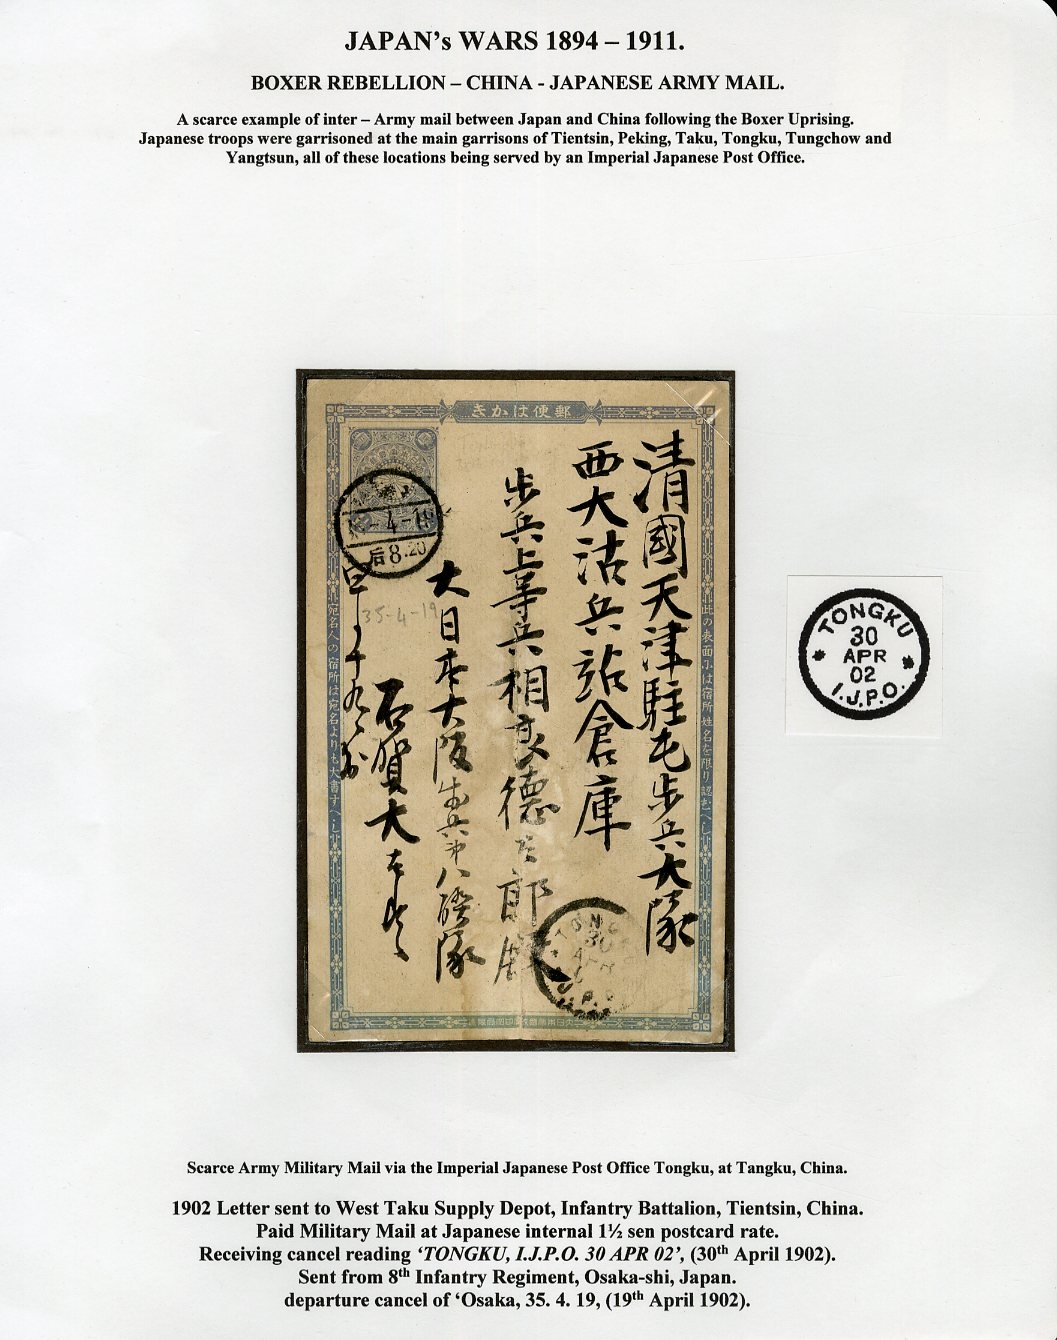 JAPAN's WARS 1894 – 1911.
BOXER REBELLION – CHINA - JAPANESE ARMY MAIL.
A scarce example of inter – Army mail between Japan and China following the Boxer Uprising.
Japanese troops were garrisoned at the main garrisons of Tientsin, Peking, Taku, Tongku, Tungchow and
Yangtsun, all of these locations being served by an Imperial Japanese Post Office.
郵便はかき
清國天津駐屯歩兵大隊
西大沽兵站倉庫
歩兵上等兵相良徳次郎殿
大日本大阪歩兵第八聯隊
石賀大
四月十九日
35-4-19
-4-19
后8.20
此の表面には宿所姓名を限り認むへし
宛名人の宿所は宛名よりも大書すへし
TONGKU
30
APR
02
I.J.P.O.
Scarce Army Military Mail via the Imperial Japanese Post Office Tongku, at Tangku, China.
1902 Letter sent to West Taku Supply Depot, Infantry Battalion, Tientsin, China.
Paid Military Mail at Japanese internal 1½ sen postcard rate.
Receiving cancel reading ‘TONGKU, I.J.P.O. 30 APR 02’, (30th April 1902).
Sent from 8th Infantry Regiment, Osaka-shi, Japan.
departure cancel of ‘Osaka, 35. 4. 19, (19th April 1902).